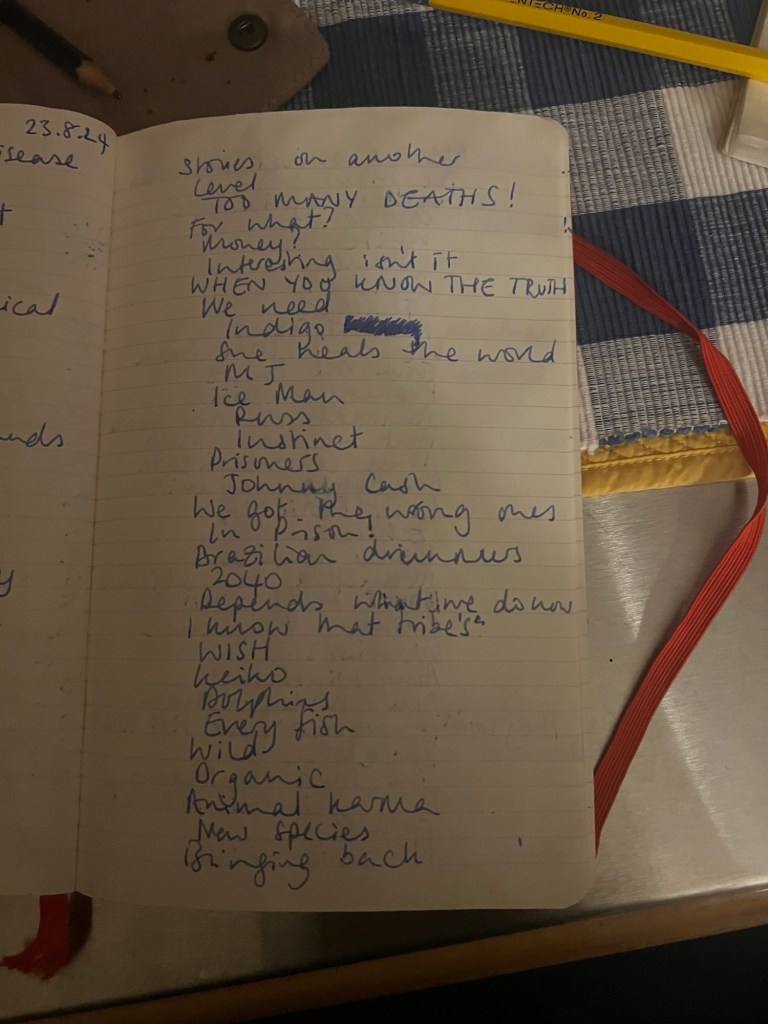 NTECH No. 2
23.8.24
isease
ical
Stories on another
Level
TOO MANY DEATHS!
For what?
Money?
Interesting isn't it
WHEN YOU KNOW THE TRUTH
We need
Indigo
She heals the world
MJ
Ice Man
Russ
Instinct
Prisoners
Johnny Cash
We got the wrong ones
In Prison!
Brazilian drummers
2040
Depends what we do now
I know that tribe's"
WISH
Keiko
Dolphins
Every fish
Wild
Organic
Animal karma
New species
Bringing back